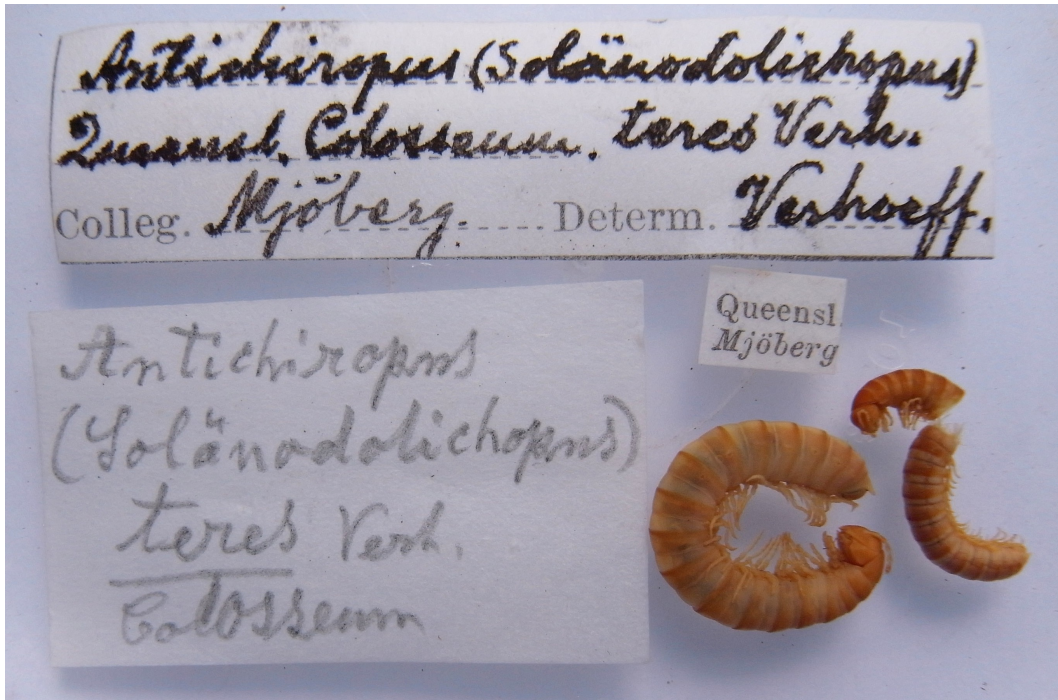 Antichiropus (Solänodolichopus)
Queensl. Colosseum. teres Verh.
Colleg. Mjöberg. Determ. Verhoeff.
Queensl.
Mjöberg
Antichiropus
(Solänodolichopus)
teres Verh.
Colosseum